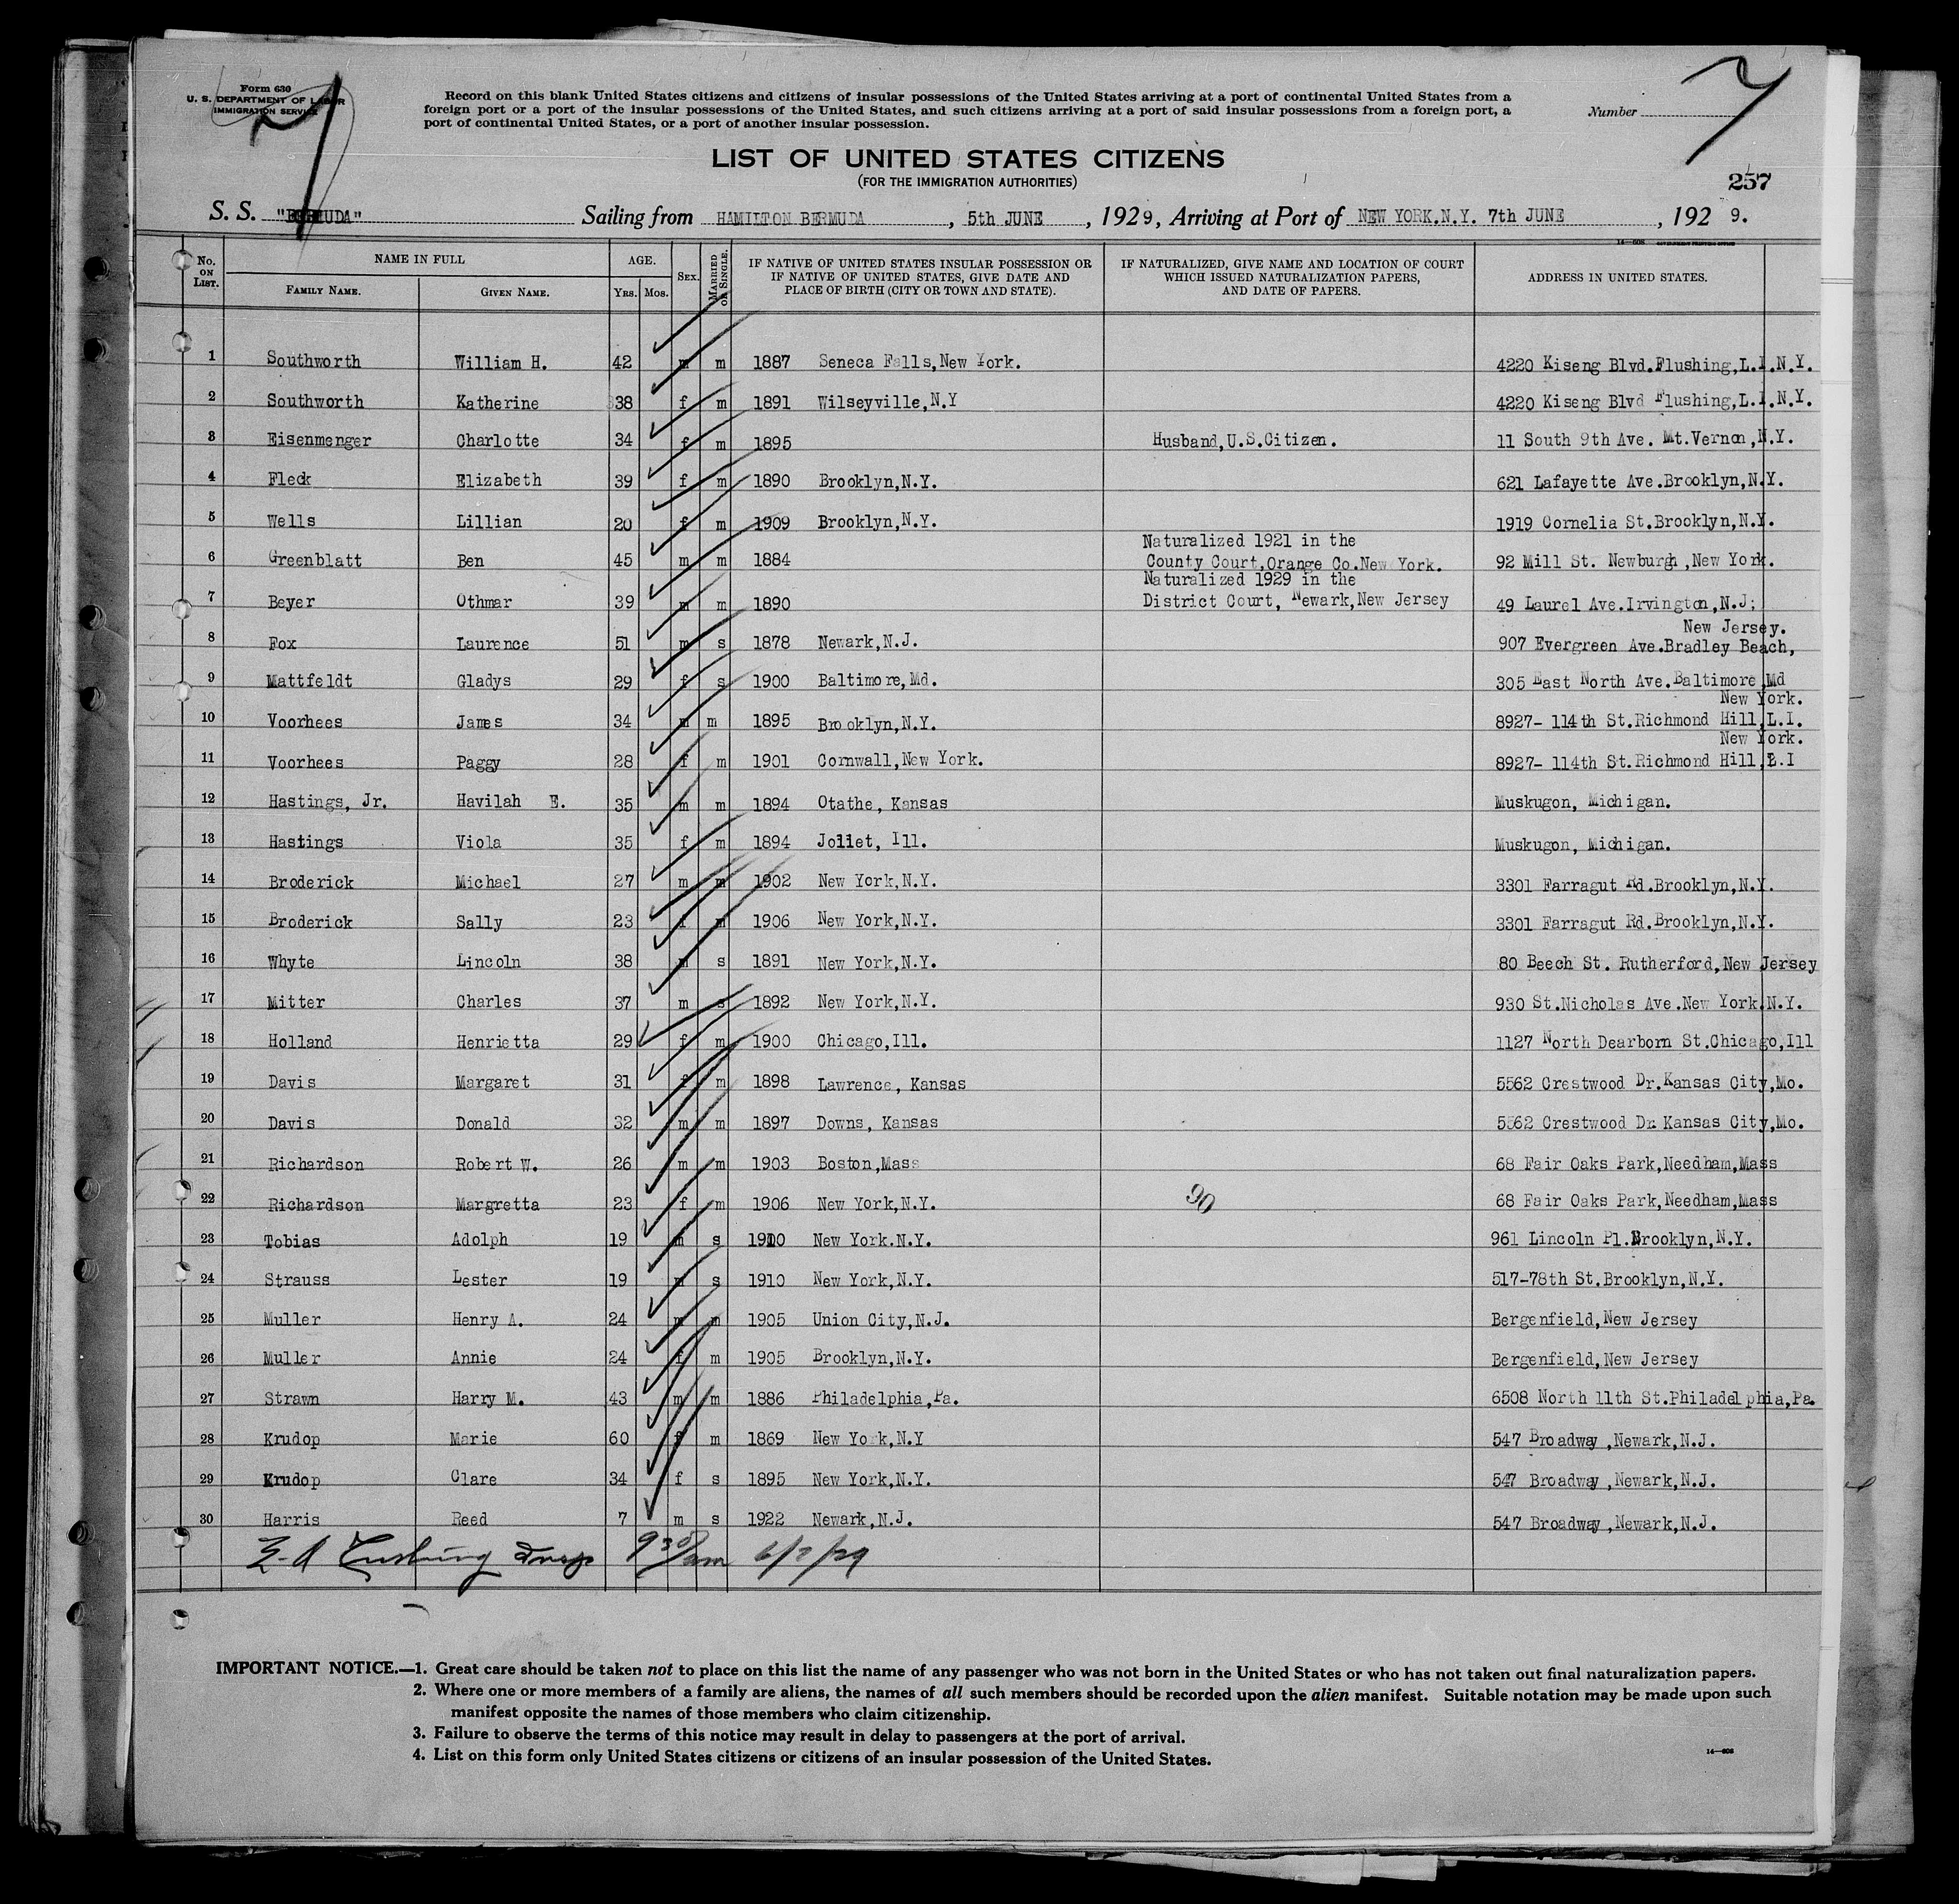 Form 630
U. S. DEPARTMENT OF LABOR
IMMIGRATION SERVICE
Record on this blank United States citizens and citizens of insular possessions of the United States arriving at a port of continental United States from a
foreign port or a port of the insular possessions of the United States, and such citizens arriving at a port of said insular possessions from a foreign port, a
port of continental United States, or a port of another insular possession.
Number
7
7
LIST OF UNITED STATES CITIZENS
(FOR THE IMMIGRATION AUTHORITIES)
257
S. S. "BERMUDA" Sailing from HAMILTON BERMUDA, 5th JUNE, 1929, Arriving at Port of NEW YORK.N.Y. 7th JUNE, 1929.
14—608 GOVERNMENT PRINTING OFFICE
No. ON LIST. NAME IN FULL AGE. SEX. MARRIED OR SINGLE. IF NATIVE OF UNITED STATES INSULAR POSSESSION OR IF NATIVE OF UNITED STATES, GIVE DATE AND PLACE OF BIRTH (CITY OR TOWN AND STATE). IF NATURALIZED, GIVE NAME AND LOCATION OF COURT WHICH ISSUED NATURALIZATION PAPERS, AND DATE OF PAPERS. ADDRESS IN UNITED STATES.
FAMILY NAME. GIVEN NAME. YRS. MOS.
1 Southworth William H. 42 m m 1887 Seneca Falls,New York. 4220 Kiseng Blvd.Flushing,L.I.N.Y.
2 Southworth Katherine 38 f m 1891 Wilseyville,N.Y 4220 Kiseng Blvd Flushing,L.I.N.Y.
3 Eisenmenger Charlotte 34 f m 1895 Husband,U.S.Citizen. 11 South 9th Ave. Mt.Vernon,N.Y.
4 Fleck Elizabeth 39 f m 1890 Brooklyn,N.Y. 621 Lafayette Ave.Brooklyn,N.Y.
5 Wells Lillian 20 f m 1909 Brooklyn,N.Y. 1919 Cornelia St.Brooklyn,N.Y.
Naturalized 1921 in the
6 Greenblatt Ben 45 m m 1884 County Court,Orange Co.New York. 92 Mill St. Newburgh,New York.
Naturalized 1929 in the
7 Beyer Othmar 39 m m 1890 District Court, Newark,New Jersey 49 Laurel Ave.Irvington,N.J;
New Jersey.
8 Fox Laurence 51 m s 1878 Newark,N.J. 907 Evergreen Ave.Bradley Beach,
9 Mattfeldt Gladys 29 f s 1900 Baltimore,Md. 305 East North Ave.Baltimore,Md
New York.
10 Voorhees James 34 m m 1895 Brooklyn,N.Y. 8927- 114th St.Richmond Hill,L.I.
New York.
11 Voorhees Paggy 28 f m 1901 Cornwall,New York. 8927- 114th St.Richmond Hill,L.I
12 Hastings, Jr. Havilah E. 35 m m 1894 Otathe, Kansas Muskugon, Michigan.
13 Hastings Viola 35 f m 1894 Joliet, Ill. Muskugon, Michigan.
14 Broderick Michael 27 m m 1902 New York,N.Y. 3301 Farragut Rd.Brooklyn,N.Y.
15 Broderick Sally 23 f m 1906 New York,N.Y. 3301 Farragut Rd.Brooklyn,N.Y.
16 Whyte Lincoln 38 m s 1891 New York,N.Y. 80 Beech St. Rutherford,New Jersey
17 Mitter Charles 37 m s 1892 New York,N.Y. 930 St.Nicholas Ave.New York.N.Y.
18 Holland Henrietta 29 f m 1900 Chicago,Ill. 1127 North Dearborn St.Chicago,Ill
19 Davis Margaret 31 f m 1898 Lawrence, Kansas 5562 Crestwood Dr.Kansas City,Mo.
20 Davis Donald 32 m m 1897 Downs, Kansas 5562 Crestwood Dr. Kansas City,Mo.
21 Richardson Robert W. 26 m m 1903 Boston,Mass 68 Fair Oaks Park,Needham,Mass
22 Richardson Margretta 23 f m 1906 New York,N.Y. 90 68 Fair Oaks Park,Needham,Mass
23 Tobias Adolph 19 m s 1910 New York.N.Y. 961 Lincoln Pl.Brooklyn,N.Y.
24 Strauss Lester 19 m s 1910 New York,N.Y. 517-78th St.Brooklyn,N.Y.
25 Muller Henry A. 24 m m 1905 Union City,N.J. Bergenfield,New Jersey
26 Muller Annie 24 f m 1905 Brooklyn,N.Y. Bergenfield,New Jersey
27 Strawn Harry M. 43 m m 1886 Philadelphia,Pa. 6508 North 11th St.Philadelphia,Pa.
28 Krudop Marie 60 f m 1869 New York,N.Y 547 Broadway,Newark,N.J.
29 Krudop Clare 34 f s 1895 New York,N.Y. 547 Broadway,Newark,N.J.
30 Harris Reed 7 m s 1922 Newark,N.J. 547 Broadway,Newark,N.J.
Insp 9 30 am 6/7/29
IMPORTANT NOTICE.—1. Great care should be taken not to place on this list the name of any passenger who was not born in the United States or who has not taken out final naturalization papers.
2. Where one or more members of a family are aliens, the names of all such members should be recorded upon the alien manifest. Suitable notation may be made upon such
manifest opposite the names of those members who claim citizenship.
3. Failure to observe the terms of this notice may result in delay to passengers at the port of arrival.
4. List on this form only United States citizens or citizens of an insular possession of the United States.
14—608